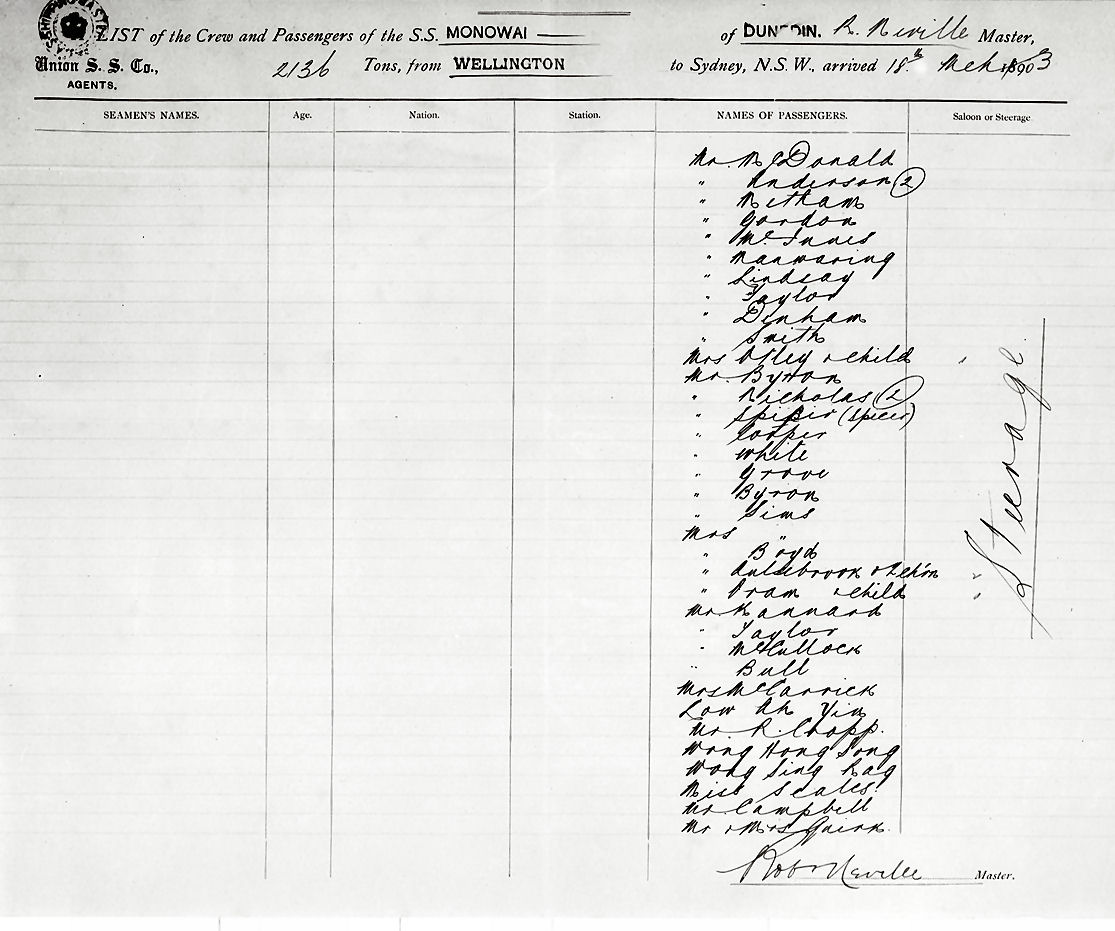 LIST of the Crew and Passengers of the S.S. MONOWAI of DUNEDIN. R. Neville Master,
Union S. S. Co., 2136 Tons, from WELLINGTON to Sydney, N.S.W., arrived 18th Mch 1903
AGENTS.
SEAMEN'S NAMES. Age. Nation. Station. NAMES OF PASSENGERS. Saloon or Steerage
Mr. McDonald
" Anderson (2)
" Metham
" Gordon
" McInnes
" Manwaring
" Lindsay
" Taylor
" Denham
" Smith
Mrs Otley & child
Mr. Byron
" Nicholas (2)
" (Spicer)
" Cooper
" White
" Grove
" Byron
" Sims
Mrs "
" Boyd
" Aulsebrook &
" Oram & child
Mr Kannard
" Taylor
" McCullock
" Bull
Mrs McCarrick
Low Ah Yin
Mr. R. Cropp.
Wong Hong Song
Wong Sing
Miss Scales.
Mr Campbell
Mr & Mrs Quirk.
Steerage
Rob Neville Master.